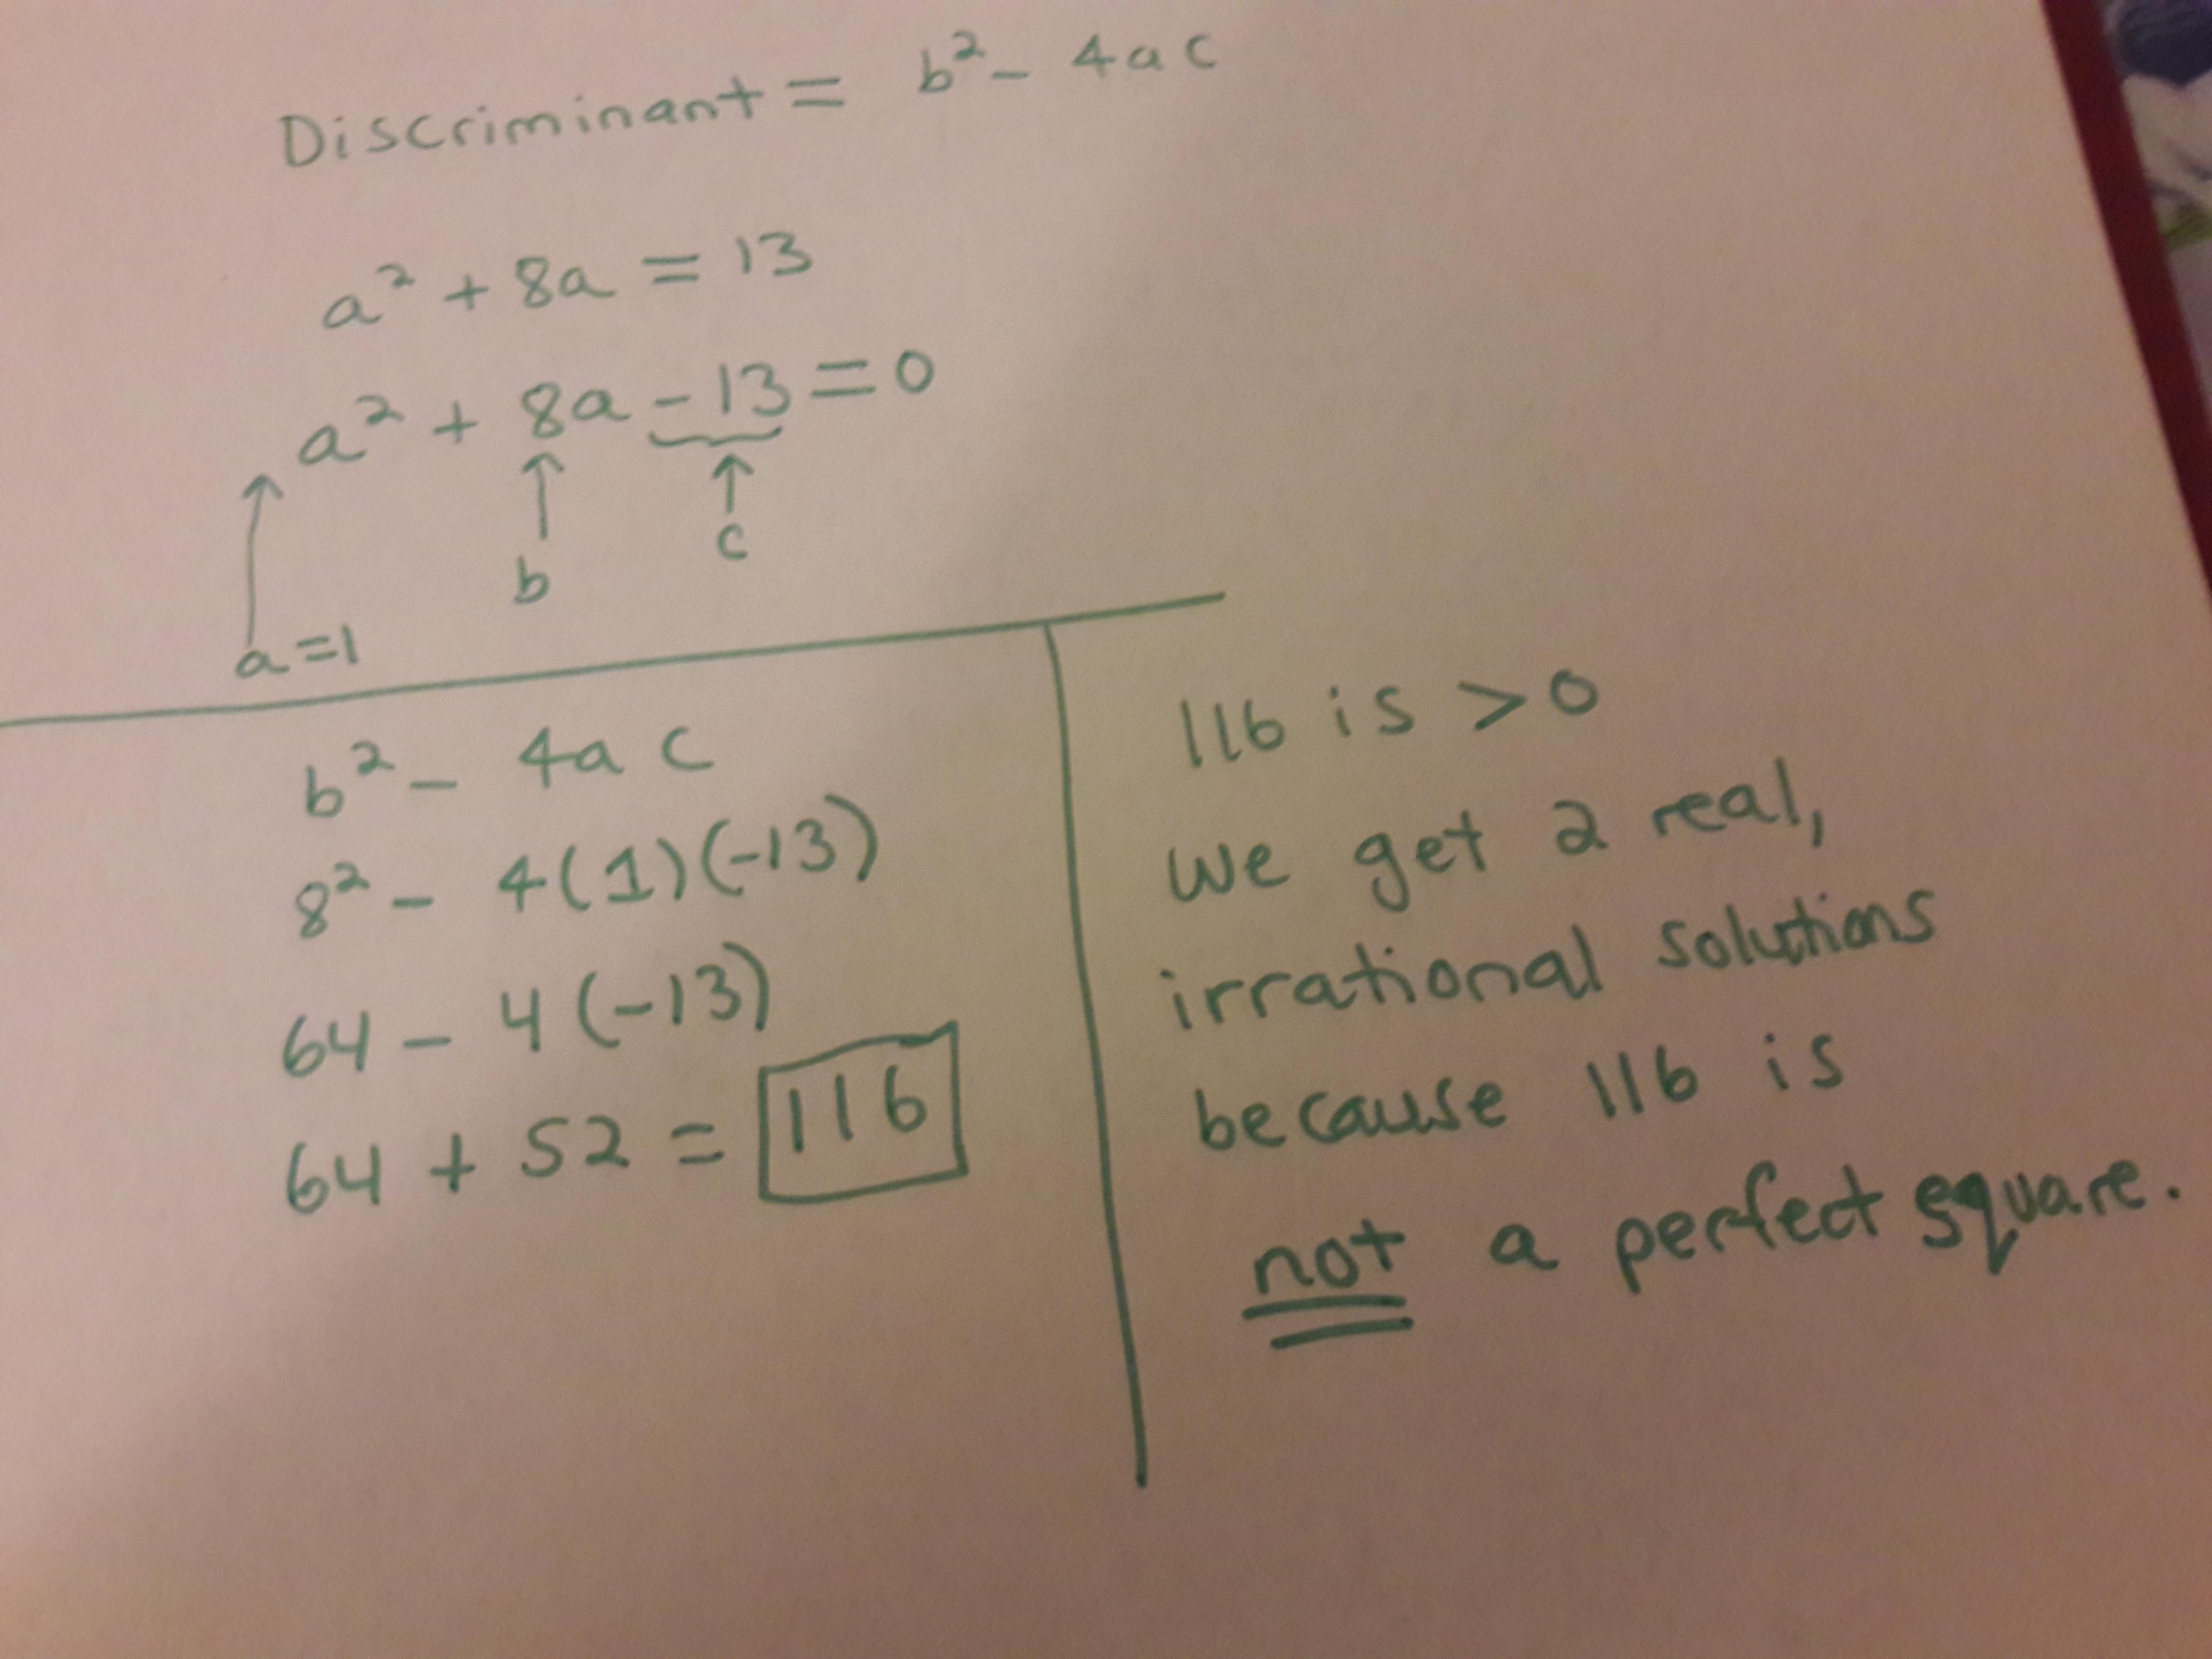 Discriminant = b² - 4ac
a² + 8a = 13
a² + 8a - 13 = 0
b
c
a = 1
b² - 4ac
8² - 4(1)(-13)
64 - 4(-13)
64 + 52 = 116
116 is > 0
We get 2 real,
irrational solutions
because 116 is
not a perfect square.